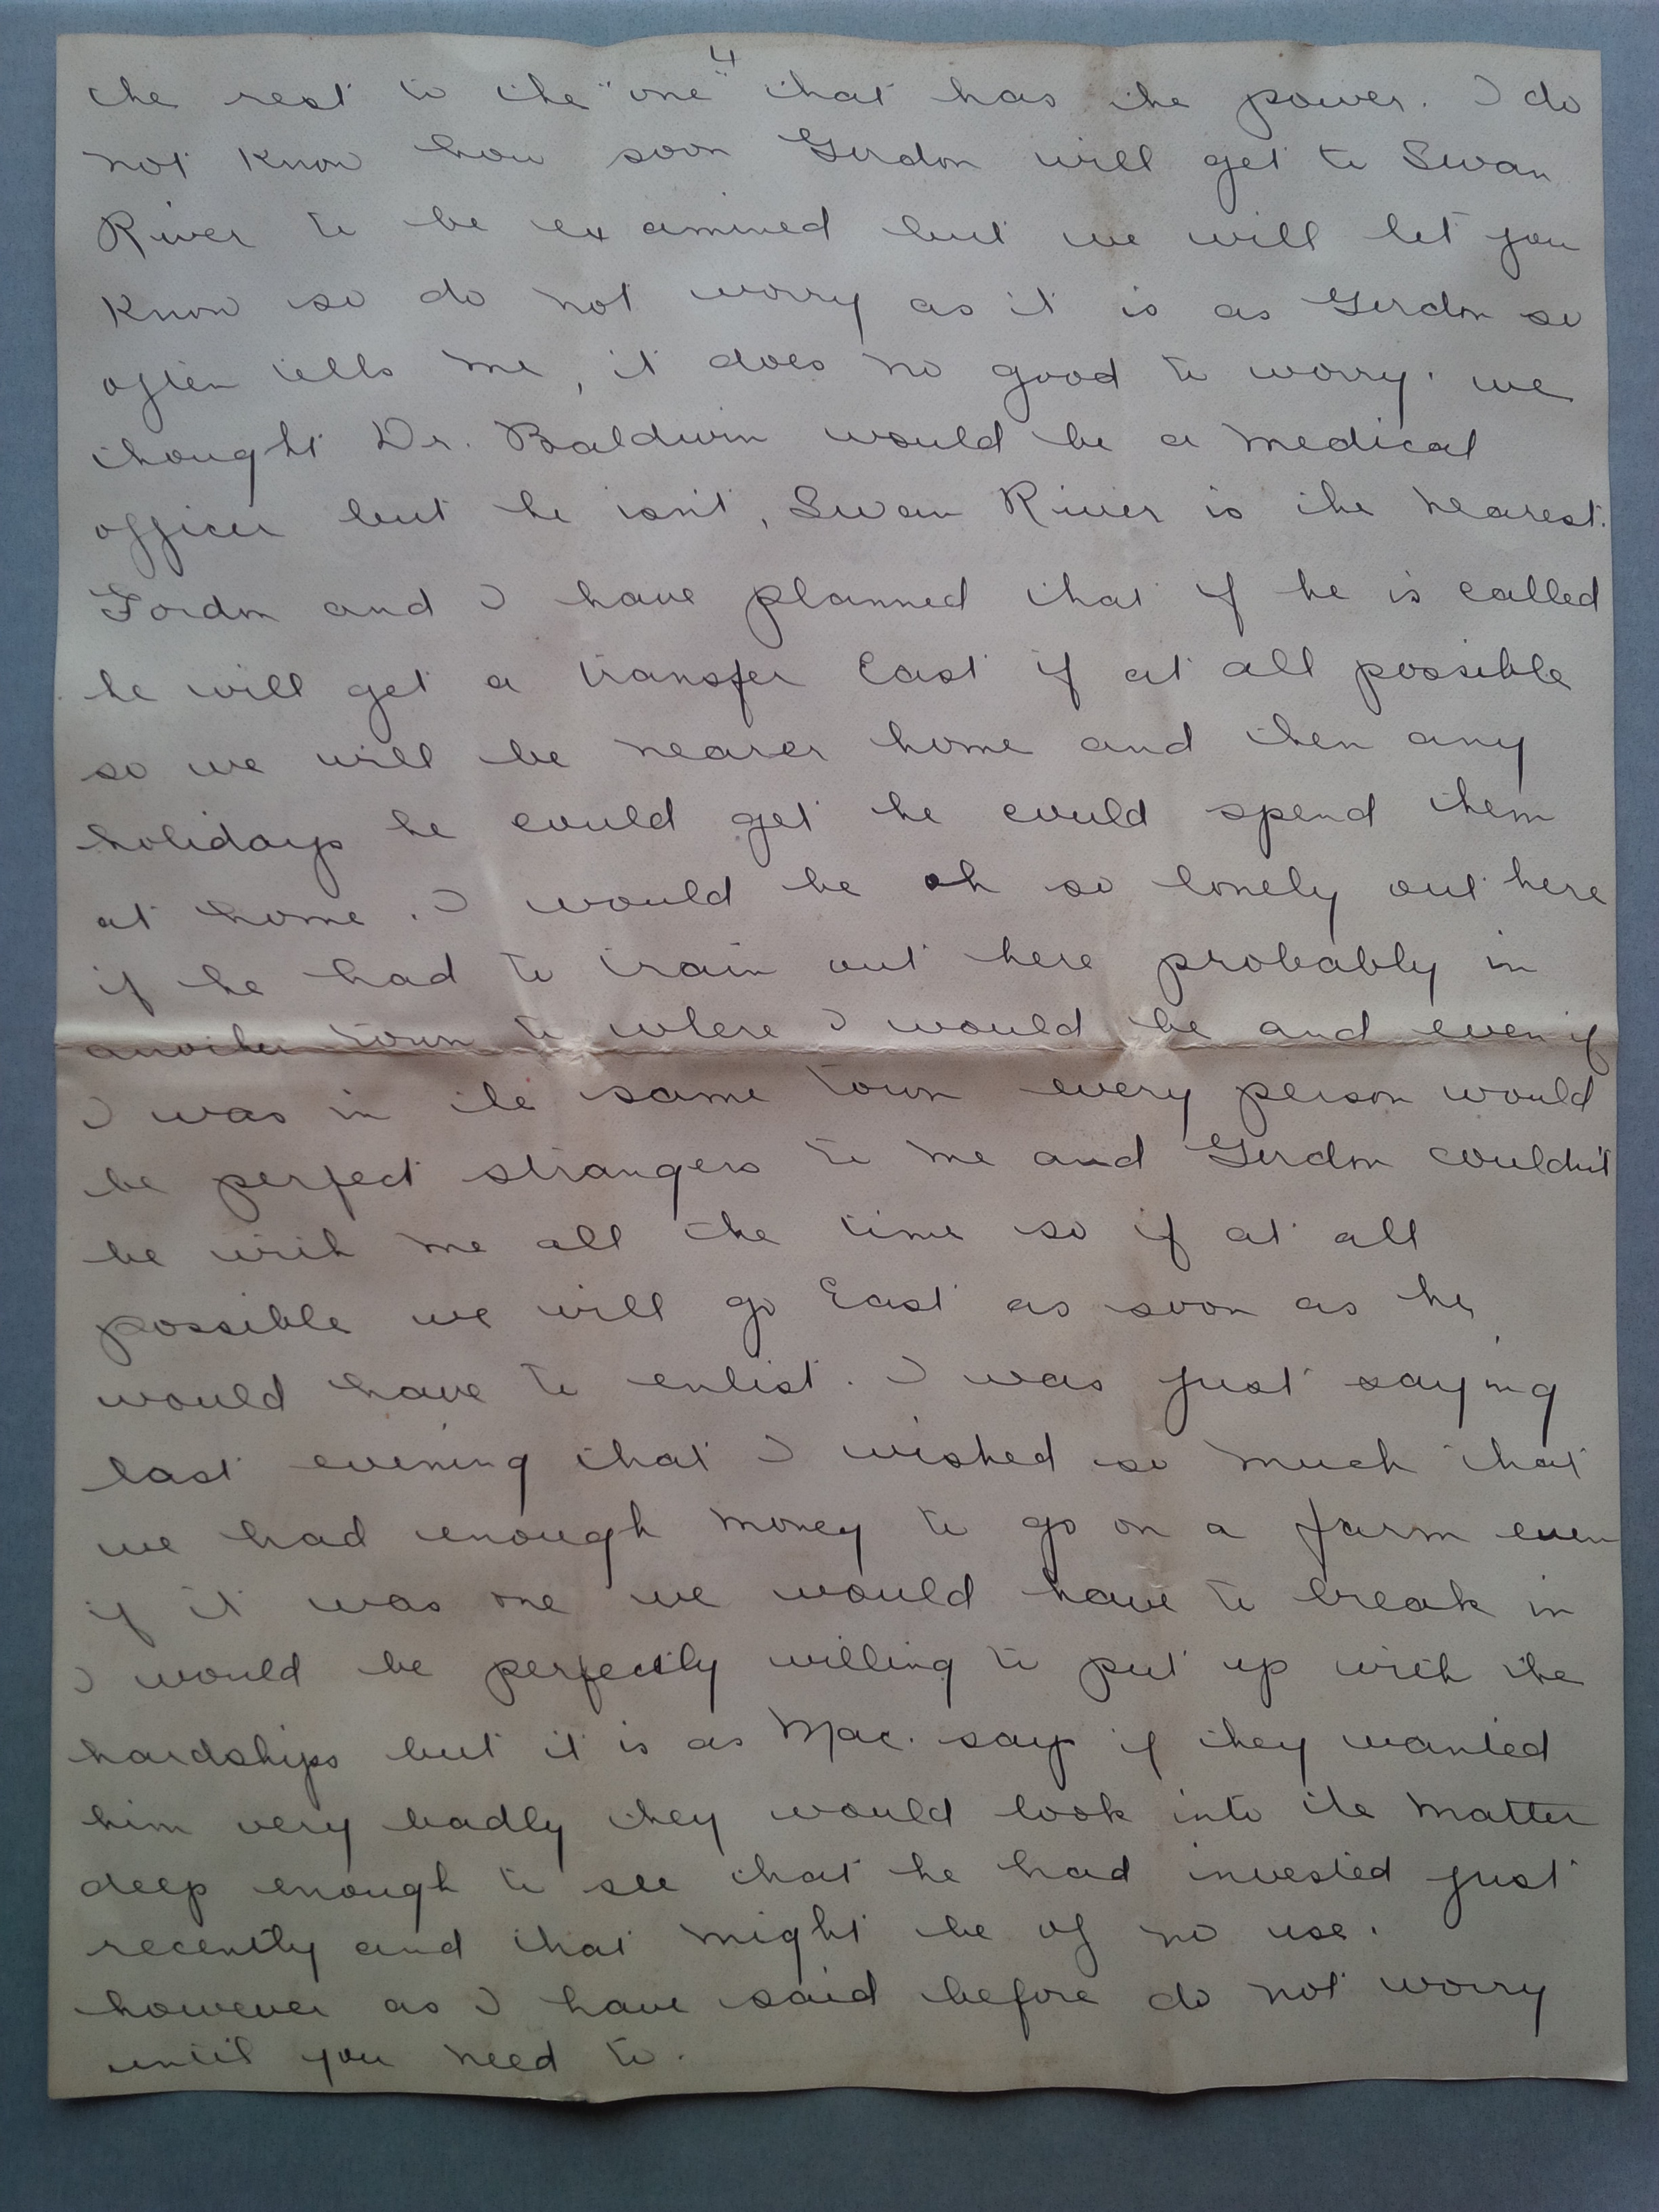 4
the rest to the "one" that has the power. I do
not know how soon Gordon will get to Swan
River to be examined but we will let you
know so do not worry as it is as Gordon so
often tells me, it does no good to worry. we
thought Dr. Baldwin would be a medical
officer but he isn't, Swan River is the nearest.
Fordon and I have planned that if he is called
he will get a transfer East if at all possible
so we will be nearer home and then any
holidays he could get he could spend them
at home. I would be oh so lonely out here
if he had to train out here probably in
another town to where I would be and even if
I was in the same town every person would
be perfect strangers to me and Gordon couldn't
be with me all the time so if at all
possible we will go East as soon as he
would have to enlist. I was just saying
last evening that I wished so much that
we had enough money to go on a farm even
if it was one we would have to break in
I would be perfectly willing to put up with the
hardships but it is as Mac. says if they wanted
him very badly they would look into the matter
deep enough to see that he had invested just
recently and that might be of no use.
however as I have said before do not worry
until you need to.